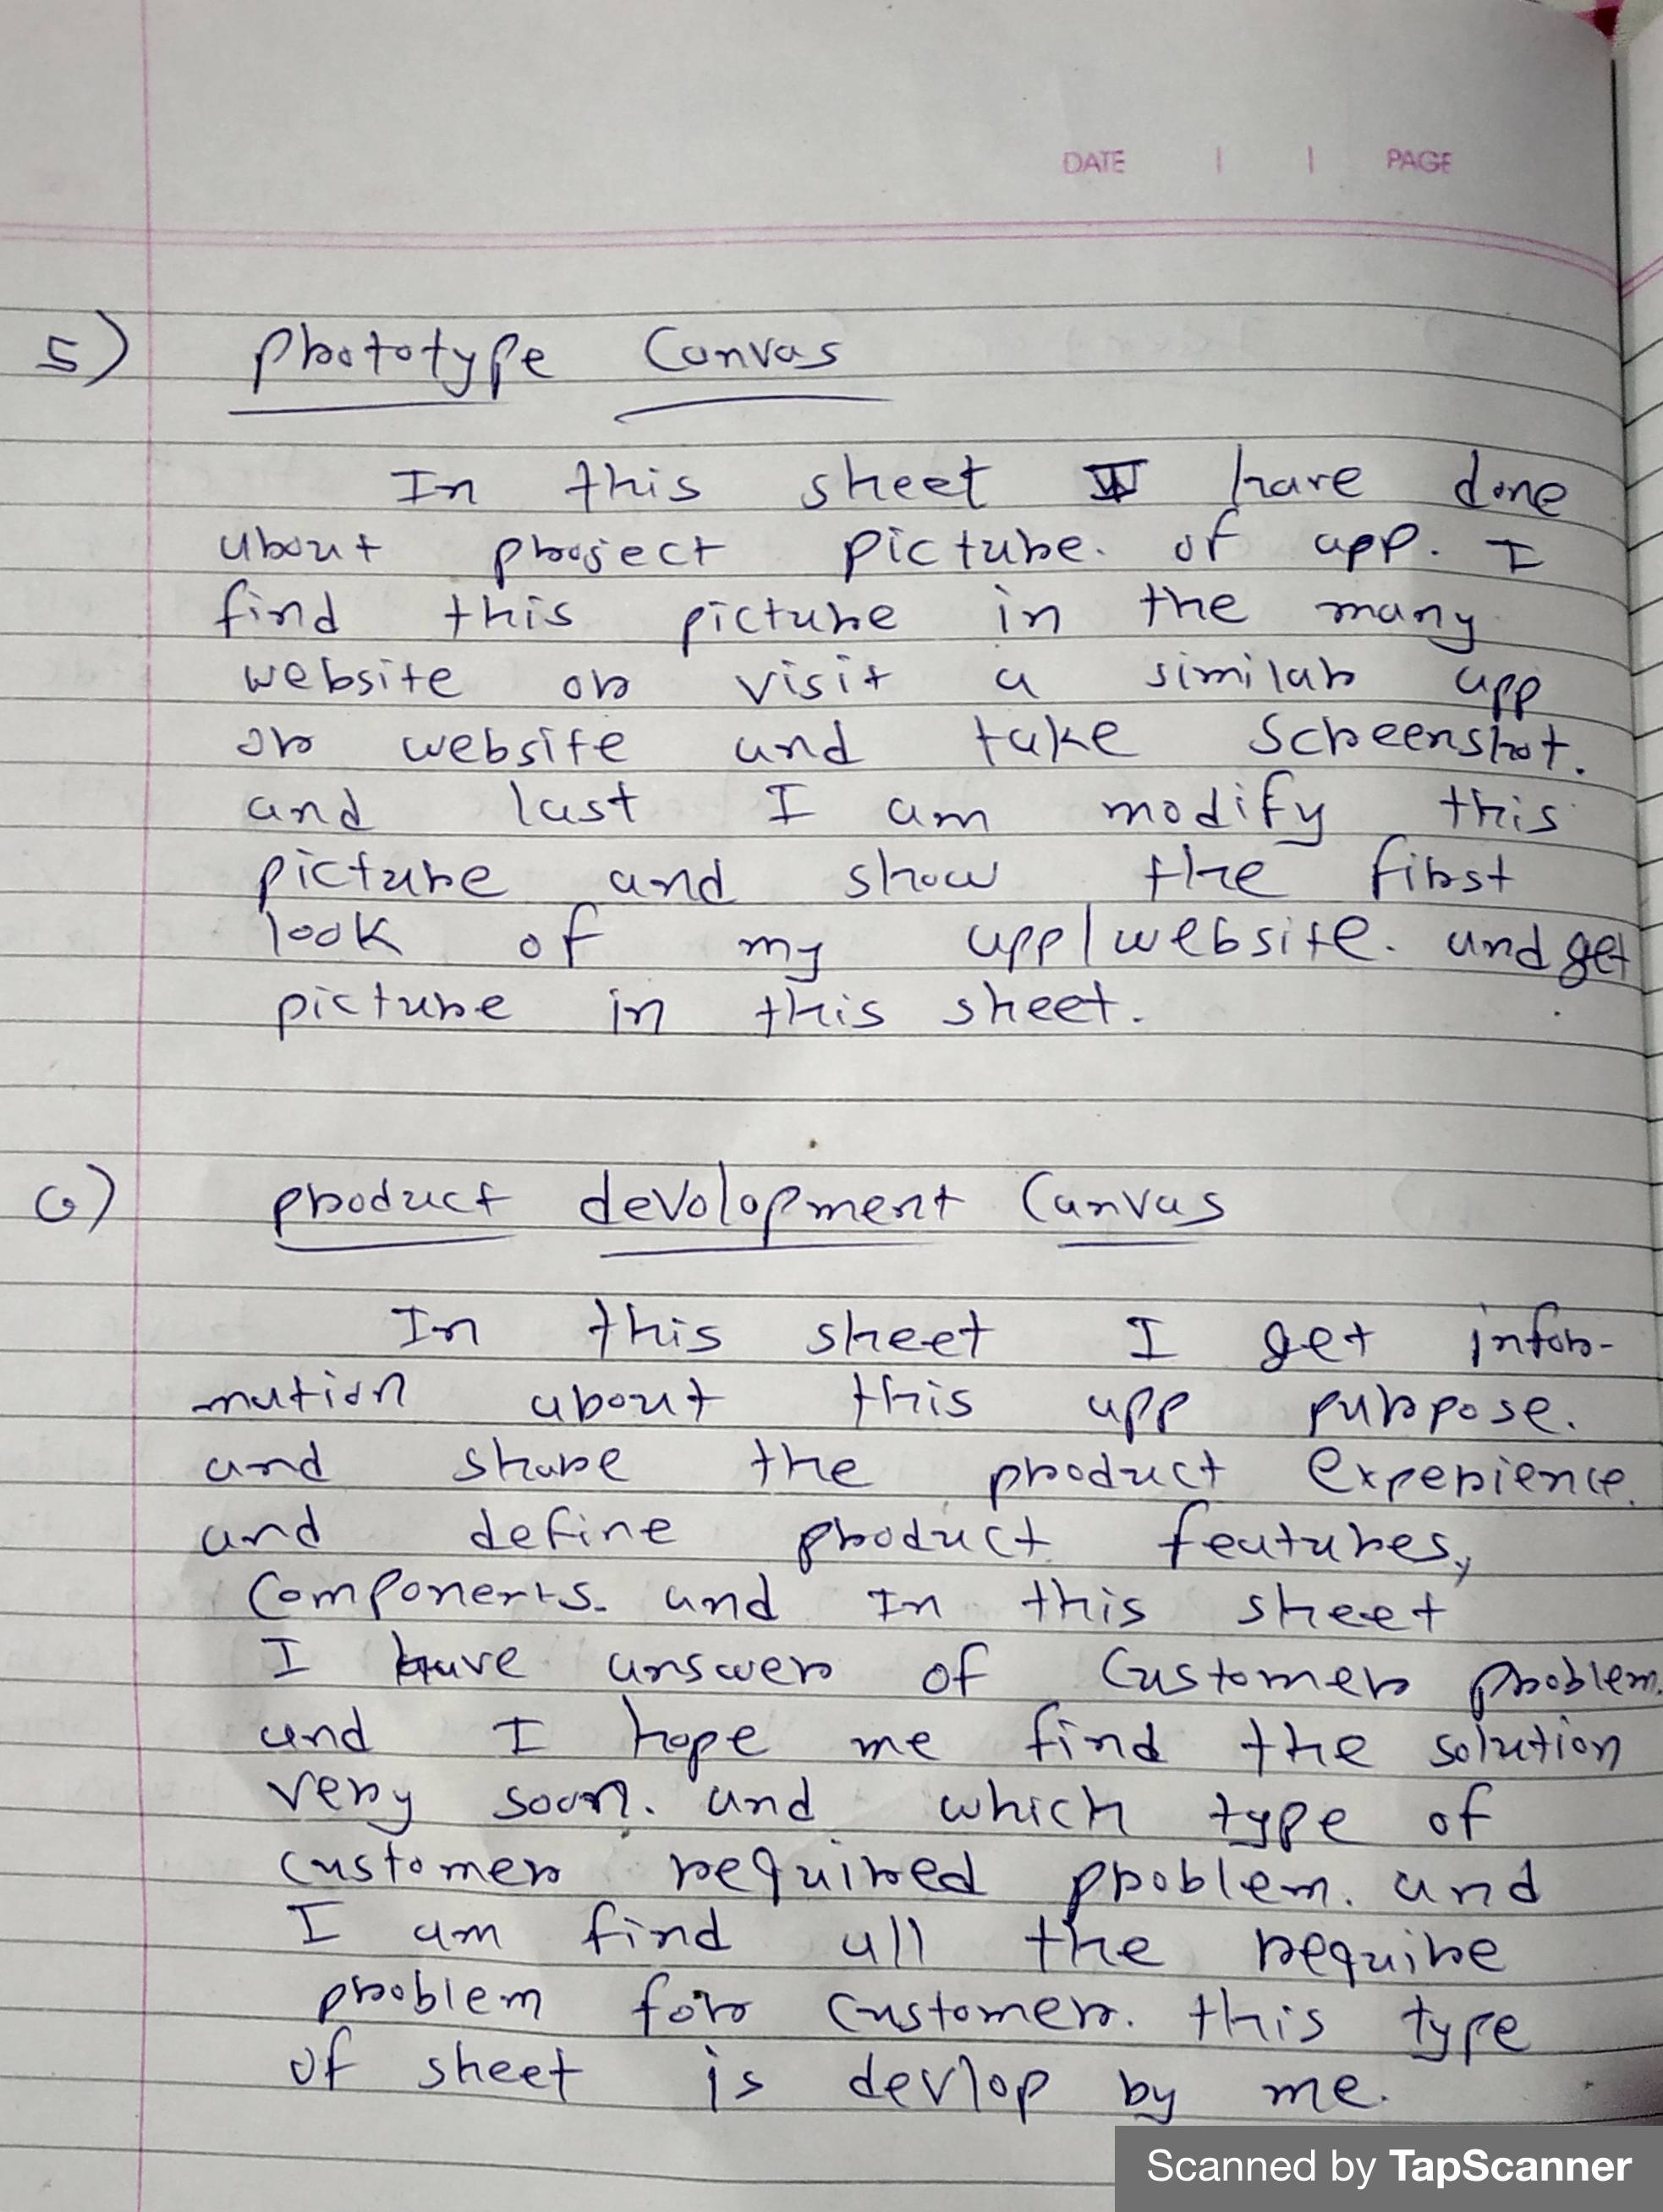 DATE | | PAGE
5) Prototype Canvas
In this sheet I have done
about project picture. of app. I
find this picture in the many
website or visit a similar app
or website and take screenshot.
and last I am modify this
picture and show the first
look of my app/website. and get
picture in this sheet.
6) product devolopment Canvas
In this sheet I get infor-
mation about this app purpose.
and share the product experience.
and define product features,
Components. and In this sheet
I have answer of Customer problem.
and I hope me find the solution
very soon. and which type of
customer required problem. and
I am find all the require
problem for customer. this type
of sheet is devlop by me.
Scanned by TapScanner